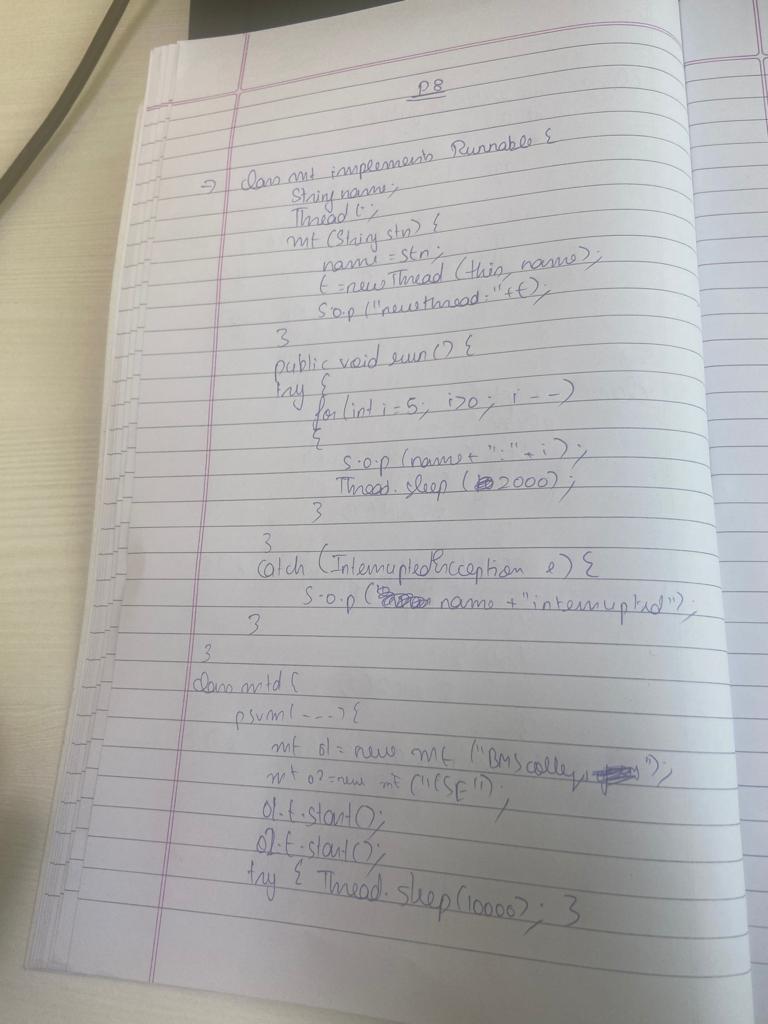 P8
=> class mt implements Runnable {
String name;
Thread t;
mt (String str) {
name = str;
t = new Thread (this, name);
S.o.p ("new thread:"+t);
}
public void run() {
try {
for (int i=5; i>0; i--)
{
S.o.p (name+ ":" + i);
Thread.sleep (2000);
}
}
catch (InterruptedException e) {
S.o.p (name + "interrupted");
}
}
class mtd {
psvm(---) {
mt o1 = new mt ("BMS college");
mt o2 = new mt ("CSE");
o1.t.start();
o2.t.start();
try { Thread.sleep(10000); }